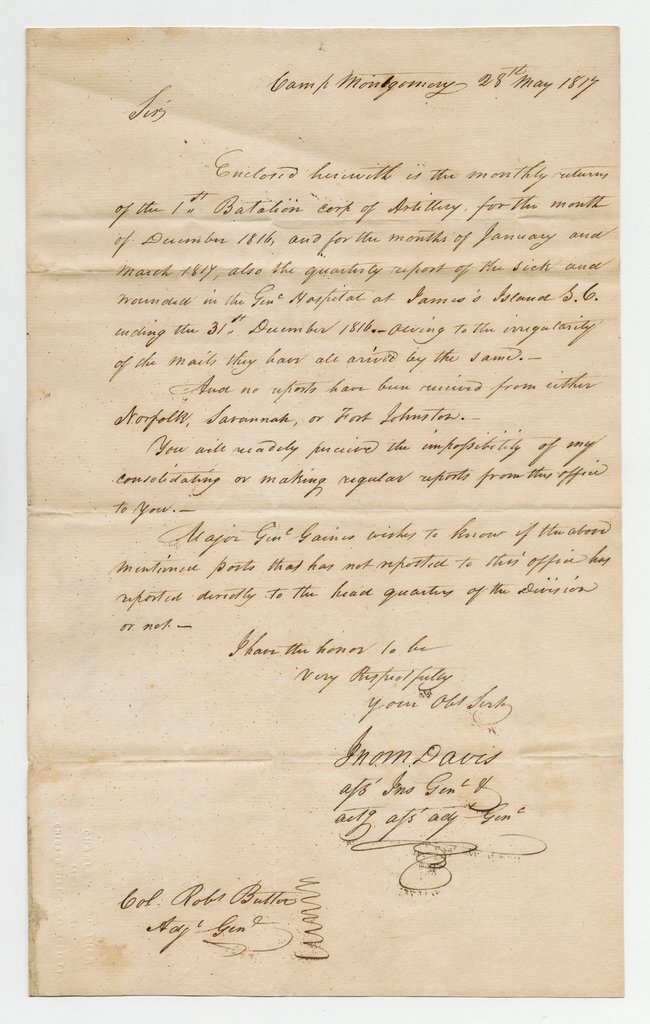 Camp Montgomery 28th May 1817
Sir,
Enclosed herewith is the monthly returns
of the 1st Batalion corp of Artillery, for the month
of December 1816, and for the months of January and
March 1817, also the quarterly report of the sick and
wounded in the Genl Hospital at James's Island S.C.
ending the 31st December 1816.—owing to the irregularity
of the mails they have all arived by the same.—
And no reports have been receivd from either
Norfolk, Savannah, or Fort Johnston.—
You will readely perceive the impossibility of my
consolidating or making regular reports from this office
to you.—
Major Genl Gaines wishes to know if the above
mentioned posts that has not reported to this office has
reported directly to the head quarters of the Division
or not.—
I have the honor to be
very Respectfully
your Obt Servt
Jno M. Davis
asst Ins Genl &
actg asst adjt Genl
Col. Robt Butler
Adjt Genl